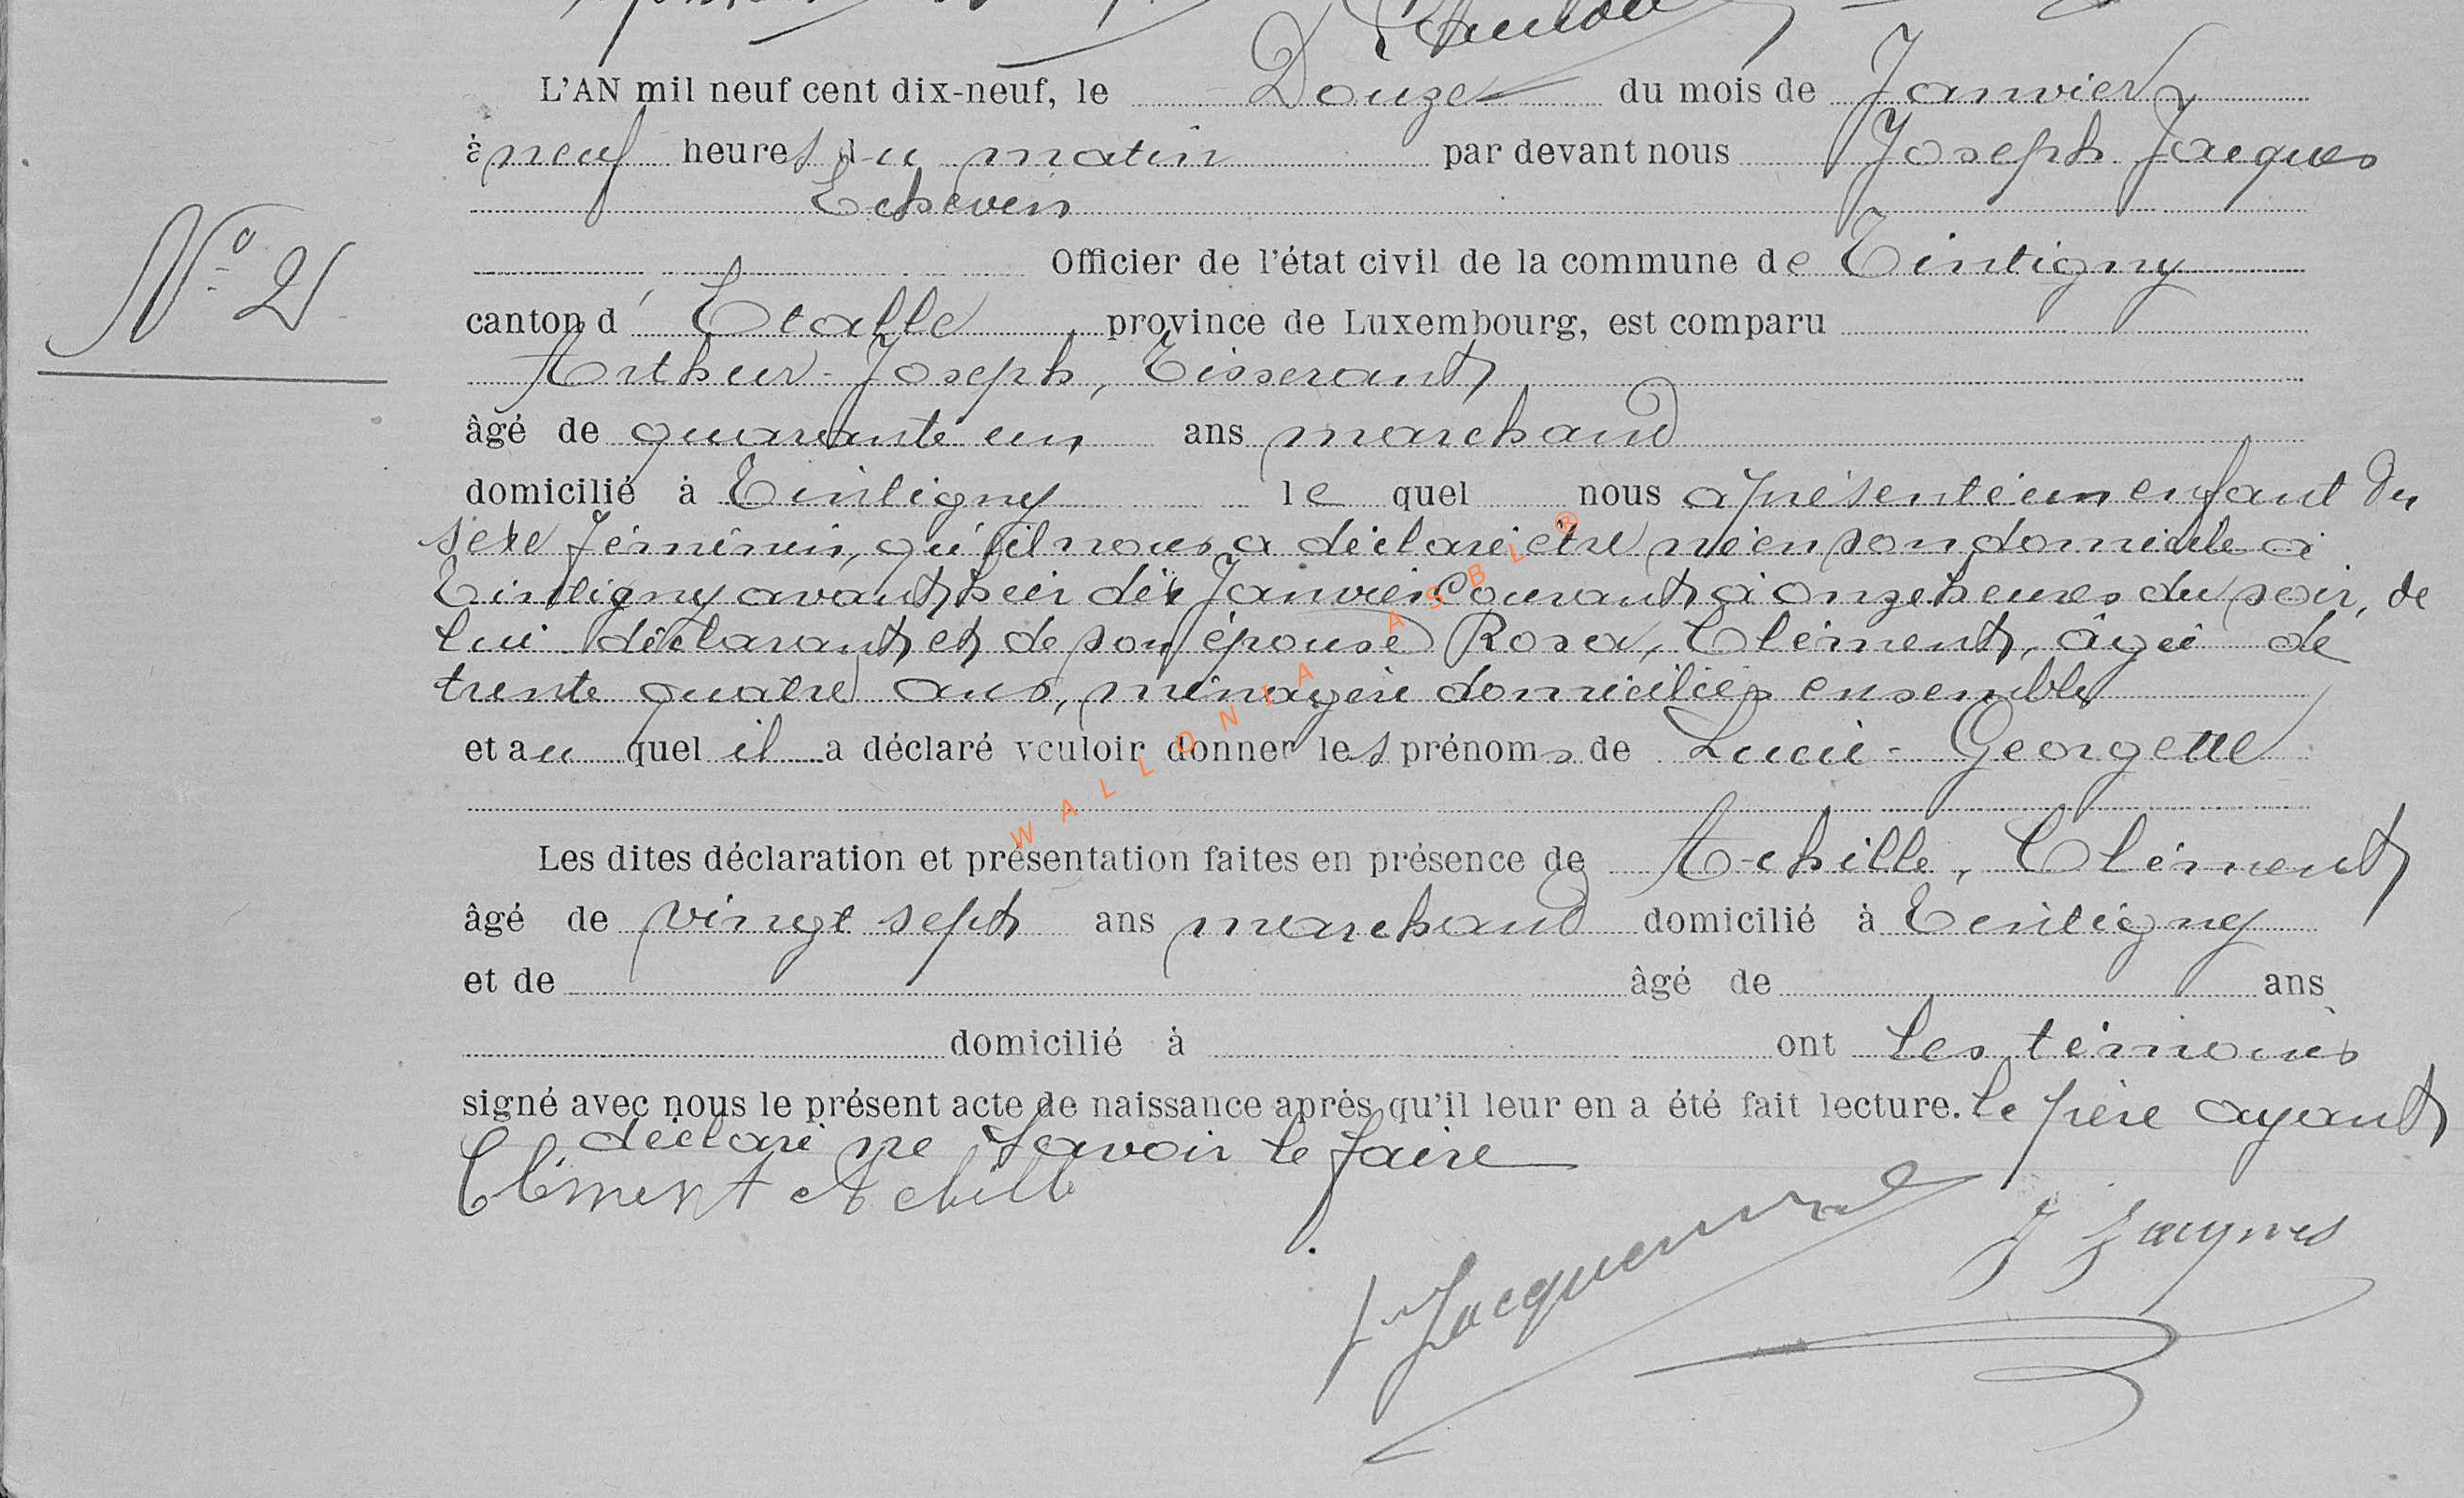 L'AN mil neuf cent dix-neuf, le Douze du mois de Janvier
à neuf heures du matin par devant nous Joseph Jacques
Echevin
Officier de l'état civil de la commune de Tintigny
N° 2
canton d'Etalle province de Luxembourg, est comparu
Arthur-Joseph, Tisserant
âgé de quarante un ans marchand
domicilié à Tintigny le quel nous a présenté un enfant du
sexe féminin, qu'il nous a déclaré être né en son domicile à
Tintigny avant hier dix Janvier Courant à onze heures du soir, de
lui déclarant et de son épouse Rosa, Clément, âgée de
trente quatre ans, ménagère domiciliés ensemble
et au quel il a déclaré vouloir donner les prénoms de Lucie-Georgette
Les dites déclaration et présentation faites en présence de Achille, Clément
âgé de vingt sept ans marchand domicilié à Tintigny
et de âgé de ans
domicilié à ont les témoins
signé avec nous le présent acte de naissance après qu'il leur en a été fait lecture. le père ayant
déclaré ne savoir le faire
Clément Achille
J Jacques
WALLONIA ASBL ®